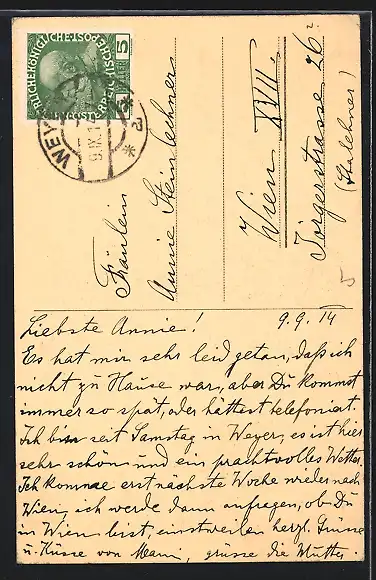 5
WEY
9.IX.1
* a *
Fräulein
Annie Steinlechner
Wien XVII.
Jörgerstrasse 26
5
Liebste Annie! 9.9.14
Es hat mir sehr leid getan, daß ich
nicht zu Hause war, aber Du kommst
immer so spät, oder hättest telefoniert.
Ich bin seit Samstag in Weyer, es ist hier
sehr schön und ein prachtvolles Wetter.
Ich komme erst nächste Woche wieder nach
Wien, ich werde dann anfragen, ob Du
in Wien bist, einstweilen herzl. Grüsse
u. Küsse von Mami, grüsse die Mutter.